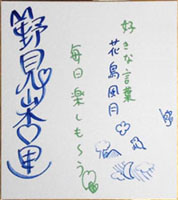 好きな言葉
花鳥風月
毎日楽しもーう
野見山杏里